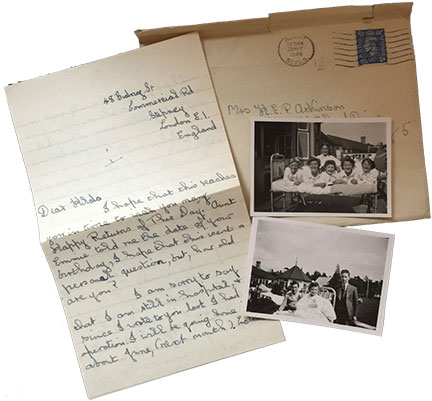 48 Sidney St
Commercial Rd
Stepney
London E.1.
England
Dear Hilda
I hope that this reaches
you in time to wish you many
Happy Returns of This Day. Aunt
Emmie told me the date of your
birthday, I hope that this isn't a
personal question, but, how old
are you?
I am sorry to say
that I am still in hospital,
since I wrote to you last I had
operation I will be going home
about June, (next month)
Mrs H.E.P. Adkinson
5